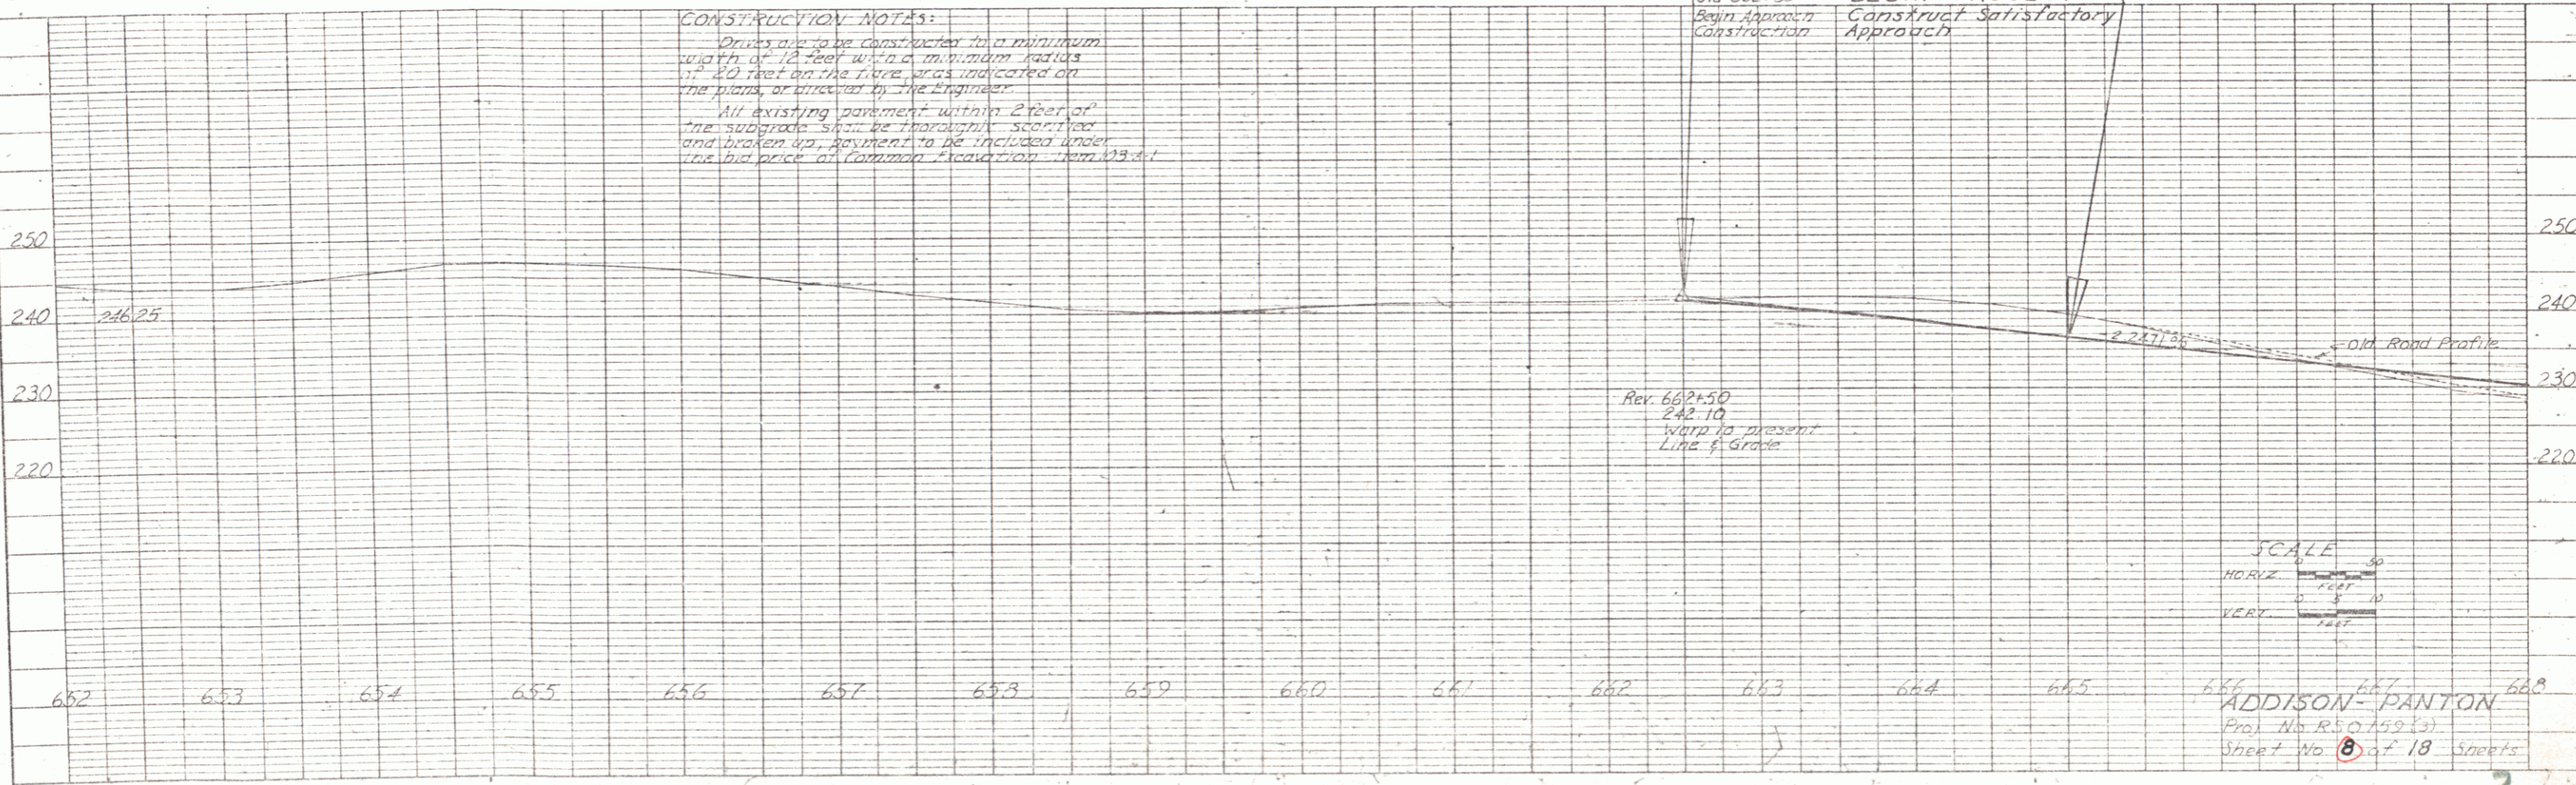 CONSTRUCTION NOTES:
Drives are to be constructed to a minimum
width of 12 feet with a minimum radius
of 20 feet on the flare or as indicated on
the plans, or directed by the Engineer.
All existing pavement within 2 feet of
the subgrade shall be thoroughly scarified
and broken up, payment to be included under
the bid price of Common Excavation Item 103-A-1
Begin Approach
Construction
Construct Satisfactory
Approach
250
240
230
220
246.25
250
240
230
220
-2.2471%
Old Road Profile
Rev. 662+50
242.10
Warp to present
Line & Grade
SCALE
HORIZ. 0 50
FEET
VERT. 0 5 10
FEET
652 653 654 655 656 657 658 659 660 661 662 663 664 665 666 667 668
ADDISON-PANTON
Proj. No. RS 0159 (3)
Sheet No. 8 of 18 Sheets